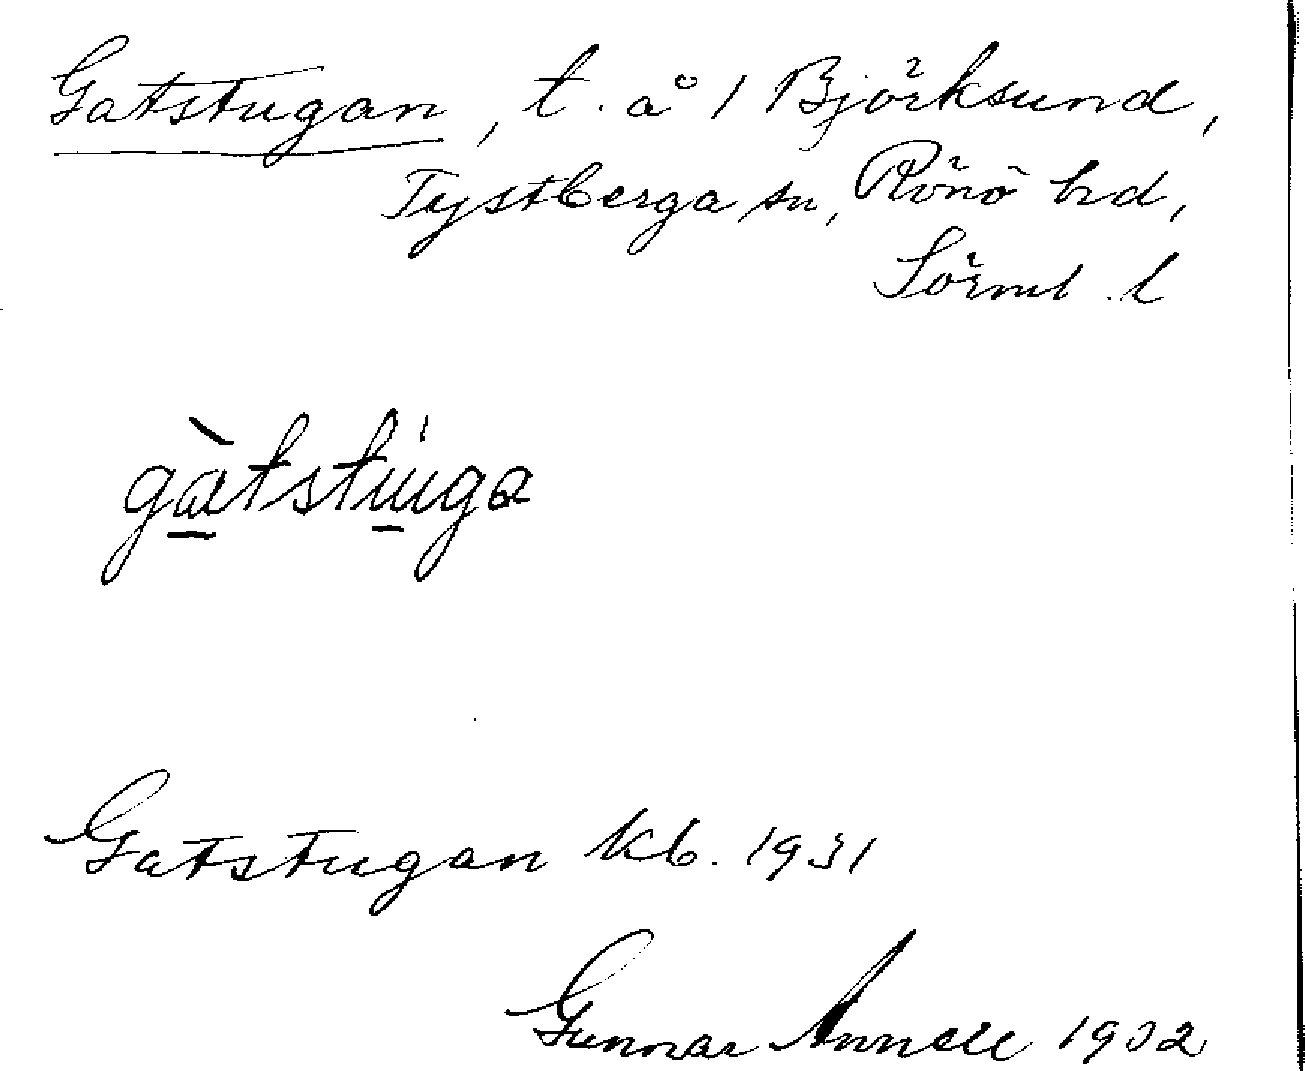 Gatstugan, t. å 1 Björksund,
Tystberga sn, Rönö hd,
Sörml. l
gàtstúga
Gatstugan kb. 1931
Gunnar Annell 1932